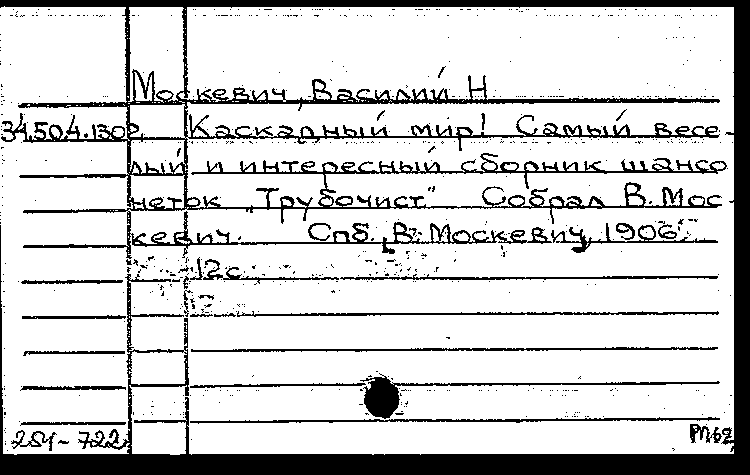 Москевич, Василий Н
34.504.1302 Каскадный мир! Самый весе-
лый и интересный сборник шансо
неток „Трубочист" Собрал В. Мос-
кевич. Спб., В. Москевич, 1906.
12с.
254-722